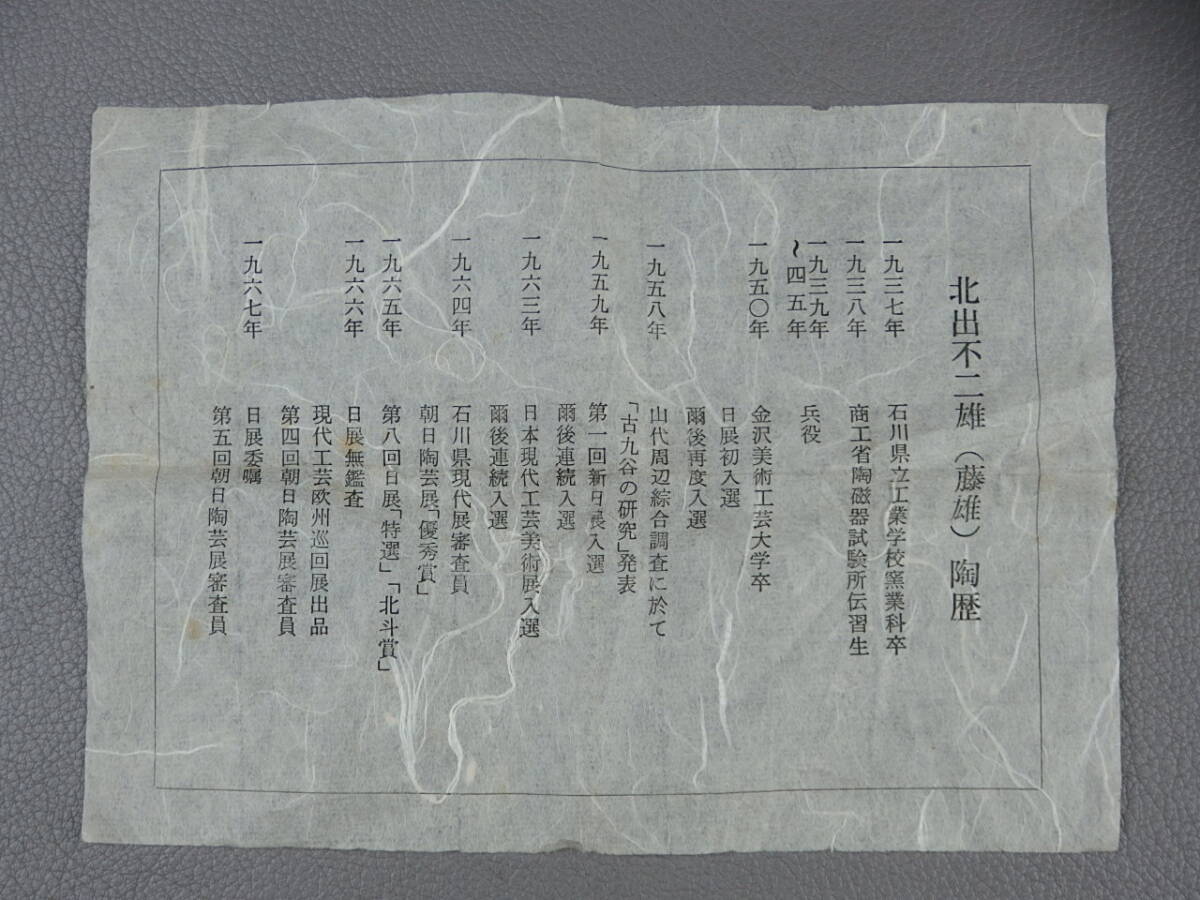 北出不二雄（藤雄）陶歴
一九三七年 石川県立工業学校窯業科卒
一九三八年 商工省陶磁器試験所伝習生
一九三九年
～四五年 兵役
一九五〇年 金沢美術工芸大学卒
日展初入選
爾後再度入選
一九五八年 山代周辺綜合調査に於て
「古九谷の研究」発表
一九五九年 第一回新日展入選
爾後連続入選
一九六三年 日本現代工芸美術展入選
爾後連続入選
一九六四年 石川県現代展審査員
朝日陶芸展「優秀賞」
一九六五年 第八回日展「特選」「北斗賞」
一九六六年 日展無鑑査
現代工芸欧州巡回展出品
第四回朝日陶芸展審査員
一九六七年 日展委嘱
第五回朝日陶芸展審査員